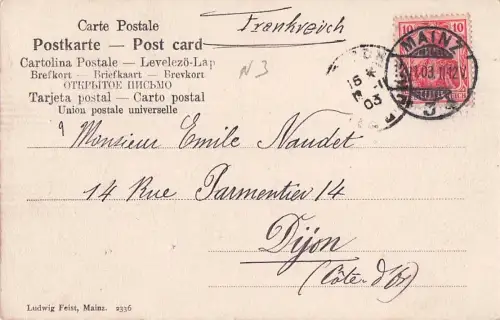 Carte Postale
Postkarte — Post card
Cartolina Postale — Levelező-Lap
Brefkort — Briefkaart — Brevkort
ОТКРЫТОЕ ПИСЬМО
Tarjeta postal — Carto postal
Union postale universelle
Frankreich
N 3
10 10
MAINZ
03 11-12 V
15
11
03
Monsieur Emile Naudet
14 Rue Parmentier 14
Dijon
(Côte d'Or)
Ludwig Feist, Mainz. 2336